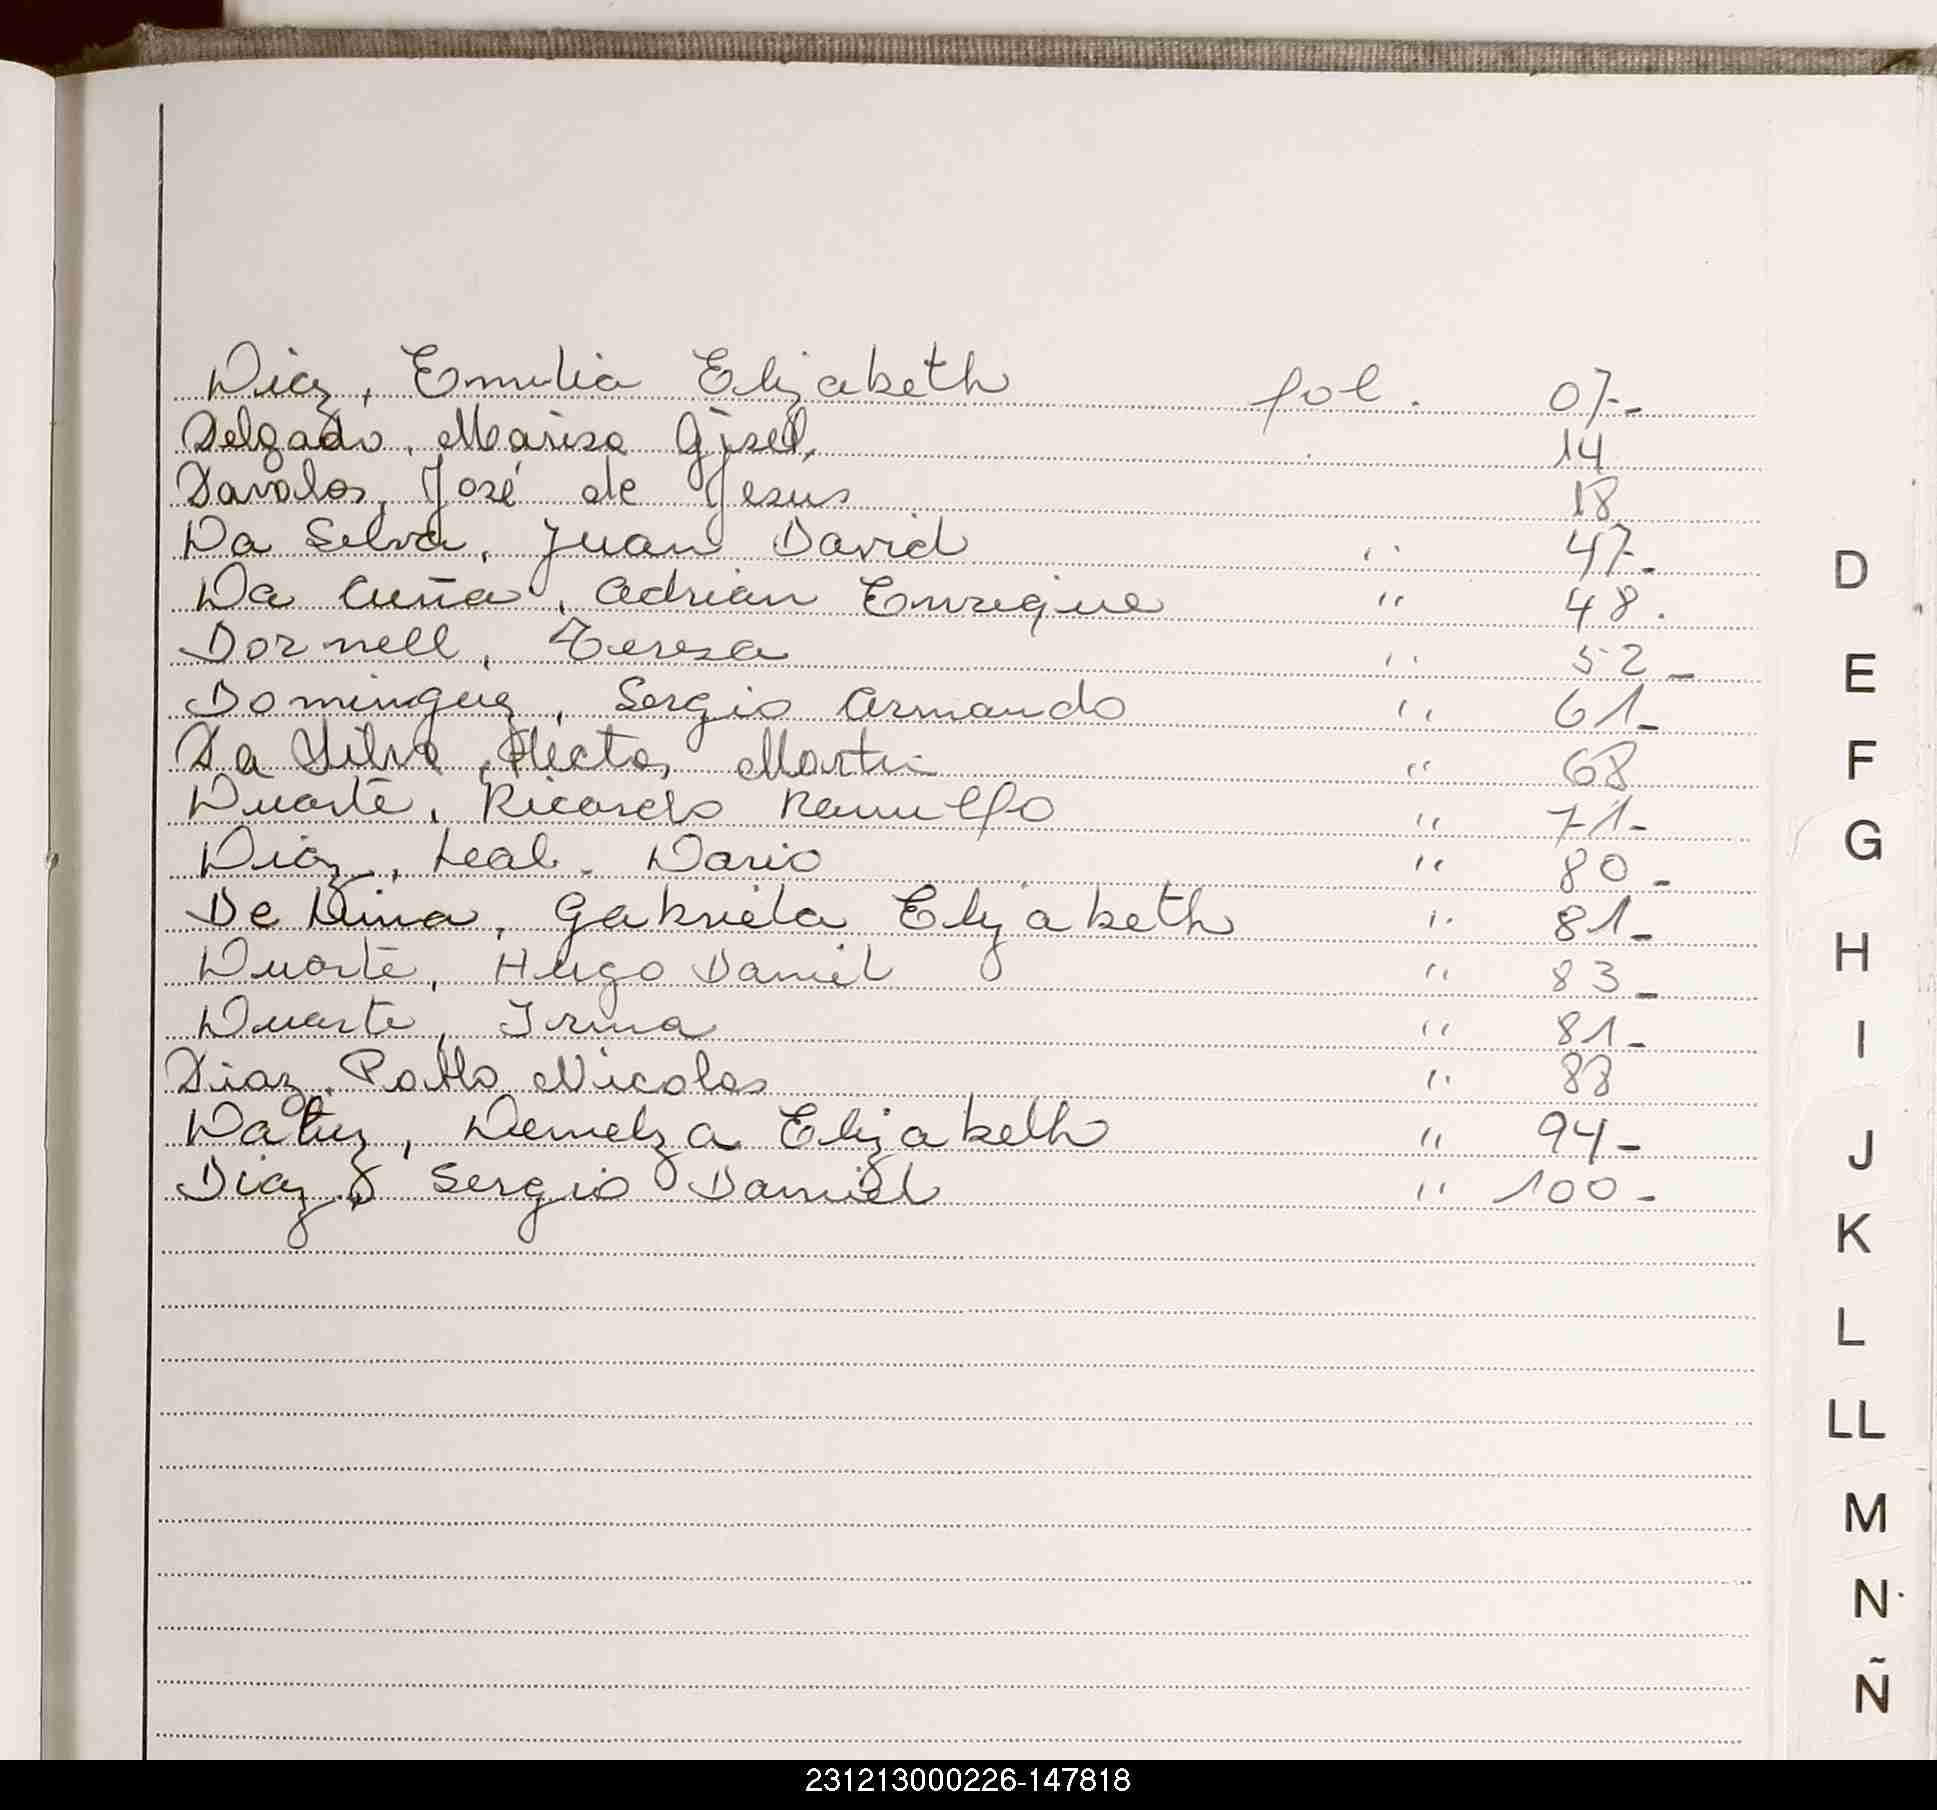 Diaz, Emilia Elizabeth fol. 07-
Delgado, Marisa Gisel, 14
Davalos, José de Jesus 18
Da Selva, Juan David " 47-
Da Cuña, Adrian Enrique " 48.
Dornell, Teresa " 52-
Dominguez, Sergio Armando " 61-
Da Silva, Hector Martin " 68
Duarte, Ricardo Ramulfo " 71-
Diaz, Leal. Dario " 80-
De Lima, Gabriela Elizabeth " 81-
Duarte, Hugo Daniel " 83-
Duarte, Irma " 81-
Diaz. Pablo Nicolas " 88
Demelza Elizabeth " 94-
Diaz, Sergio Daniel " 100-
D
E
F
G
H
I
J
K
L
LL
M
N
Ñ
231213000226-147818